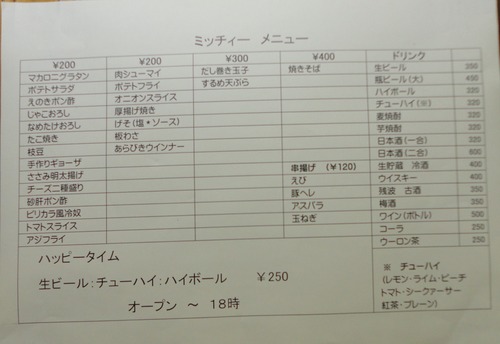 ミッティー メニュー
¥200 ¥200 ¥300 ¥400 ドリンク
マカロニグラタン 肉シューマイ だし巻き玉子 焼きそば 生ビール 350
ポテトサラダ ポテトフライ するめ天ぷら 瓶ビール(大) 450
えのきポン酢 オニオンスライス ハイボール 320
じゃこおろし 厚揚げ焼き チューハイ(※) 320
なめけおろし げそ(塩*ソース) 麦焼酎 320
たこ焼き 板わさ 芋焼酎 320
枝豆 あらびきウインナー 日本酒(一合) 320
手作りギョーザ 日本酒(二合) 600
ささみ明太揚げ 串揚げ (¥120) 生貯蔵 冷酒 400
チーズ二種盛り えび ウイスキー 400
砂肝ポン酢 豚ヘレ 残波 古酒 350
ピリカラ風冷奴 アスパラ 梅酒 350
トマトスライス 玉ねぎ ワイン(ボトル) 500
アジフライ コーラ 250
ウーロン茶 250
ハッピータイム
生ビール:チューハイ:ハイボール ¥250
オープン ~ 18時
※ チューハイ
(レモン・ライム・ピーチ
トマト・シークァーサー
紅茶・プレーン)